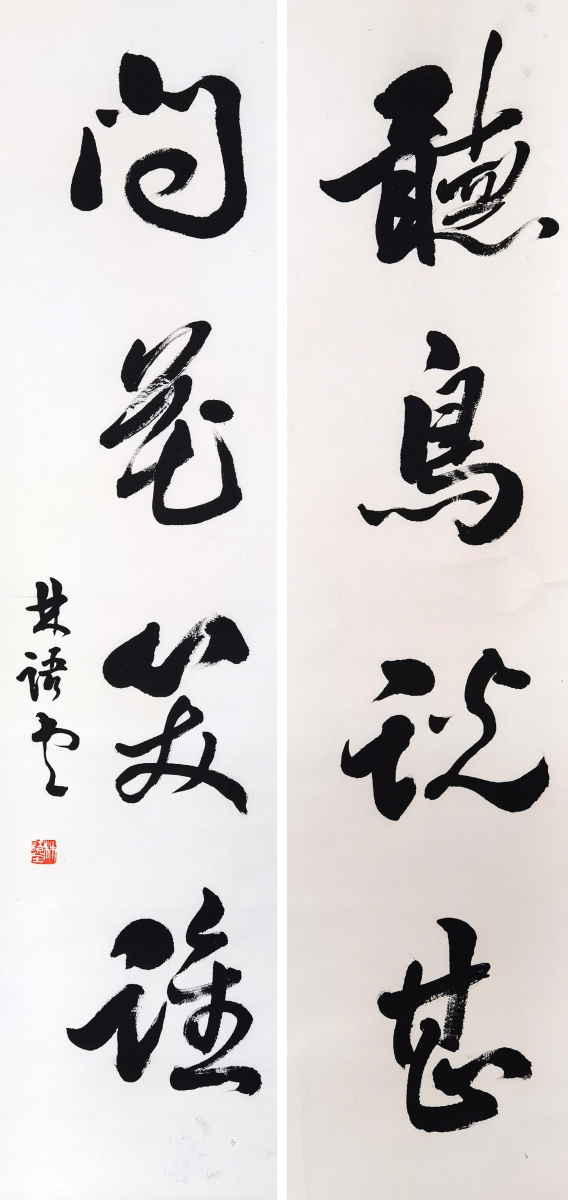 聽鳥說甚
問花笑誰
林語堂